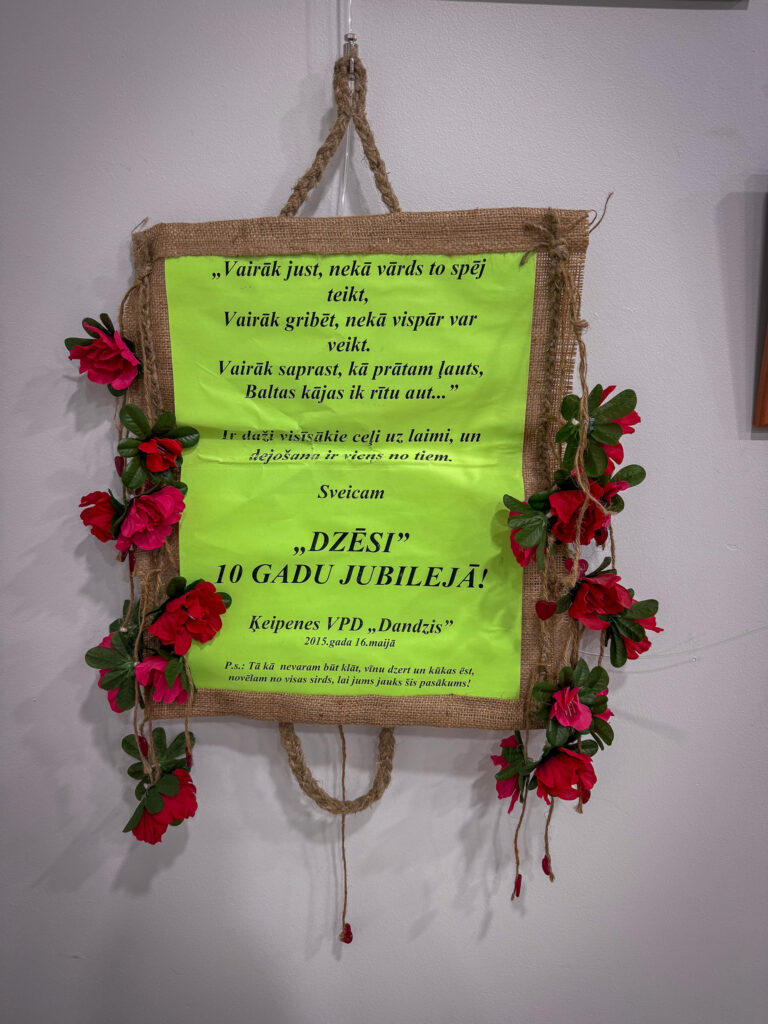 „Vairāk just, nekā vārds to spēj
teikt,
Vairāk gribēt, nekā vispār var
veikt.
Vairāk saprast, kā prātam ļauts,
Baltas kājas ik rītu aut...”
Ir daži visīsākie ceļi uz laimi, un
dejošana ir viens no tiem.
Sveicam
„DZĒSI”
10 GADU JUBILEJĀ!
Ķeipenes VPD „Dandzis”
2015.gada 16.maijā
P.s.: Tā kā nevaram būt klāt, vīnu dzert un kūkas ēst,
novēlam no visas sirds, lai jums jauks šis pasākums!